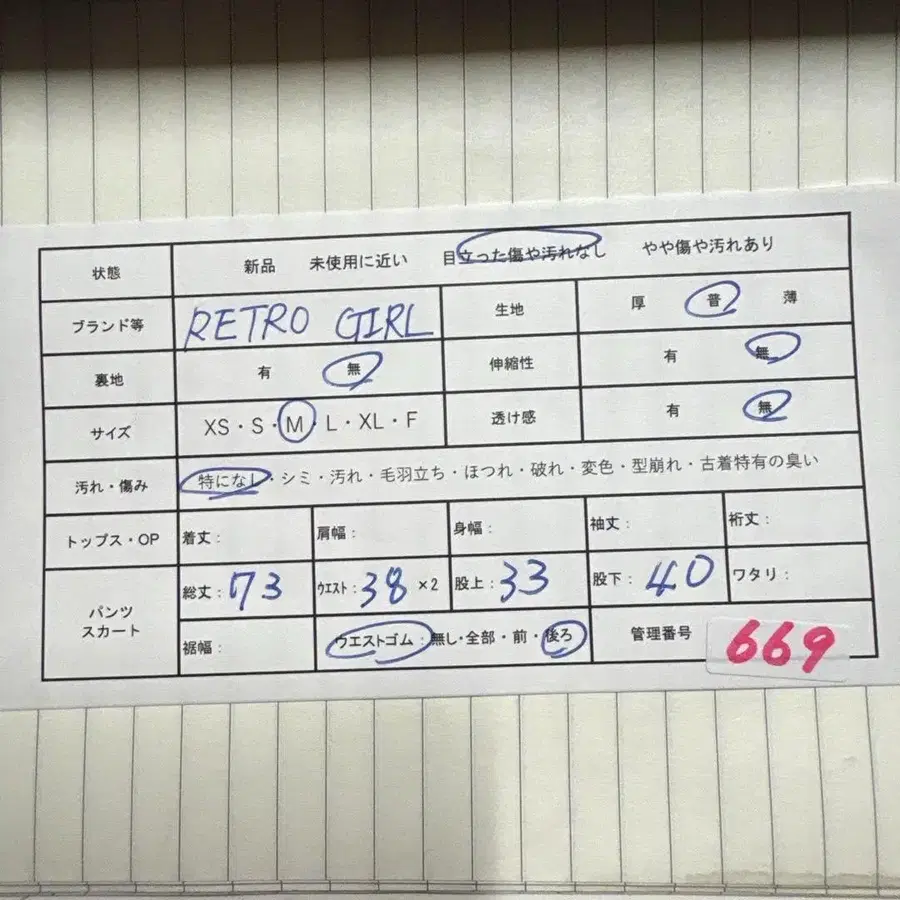 状態 新品 未使用に近い 目立った傷や汚れなし やや傷や汚れあり
ブランド等 RETRO GIRL 生地 厚 普 薄
裏地 有 無 伸縮性 有 無
サイズ XS・S・M・L・XL・F 透け感 有 無
汚れ・傷み 特になし・シミ・汚れ・毛羽立ち・ほつれ・破れ・変色・型崩れ・古着特有の臭い
トップス・OP 着丈: 肩幅: 身幅: 袖丈: 裄丈:
パンツ
スカート
総丈:73 ウエスト:38 ×2 股上:33 股下:40 ワタリ:
裾幅: ウエストゴム:無し・全部・前・後ろ 管理番号 669